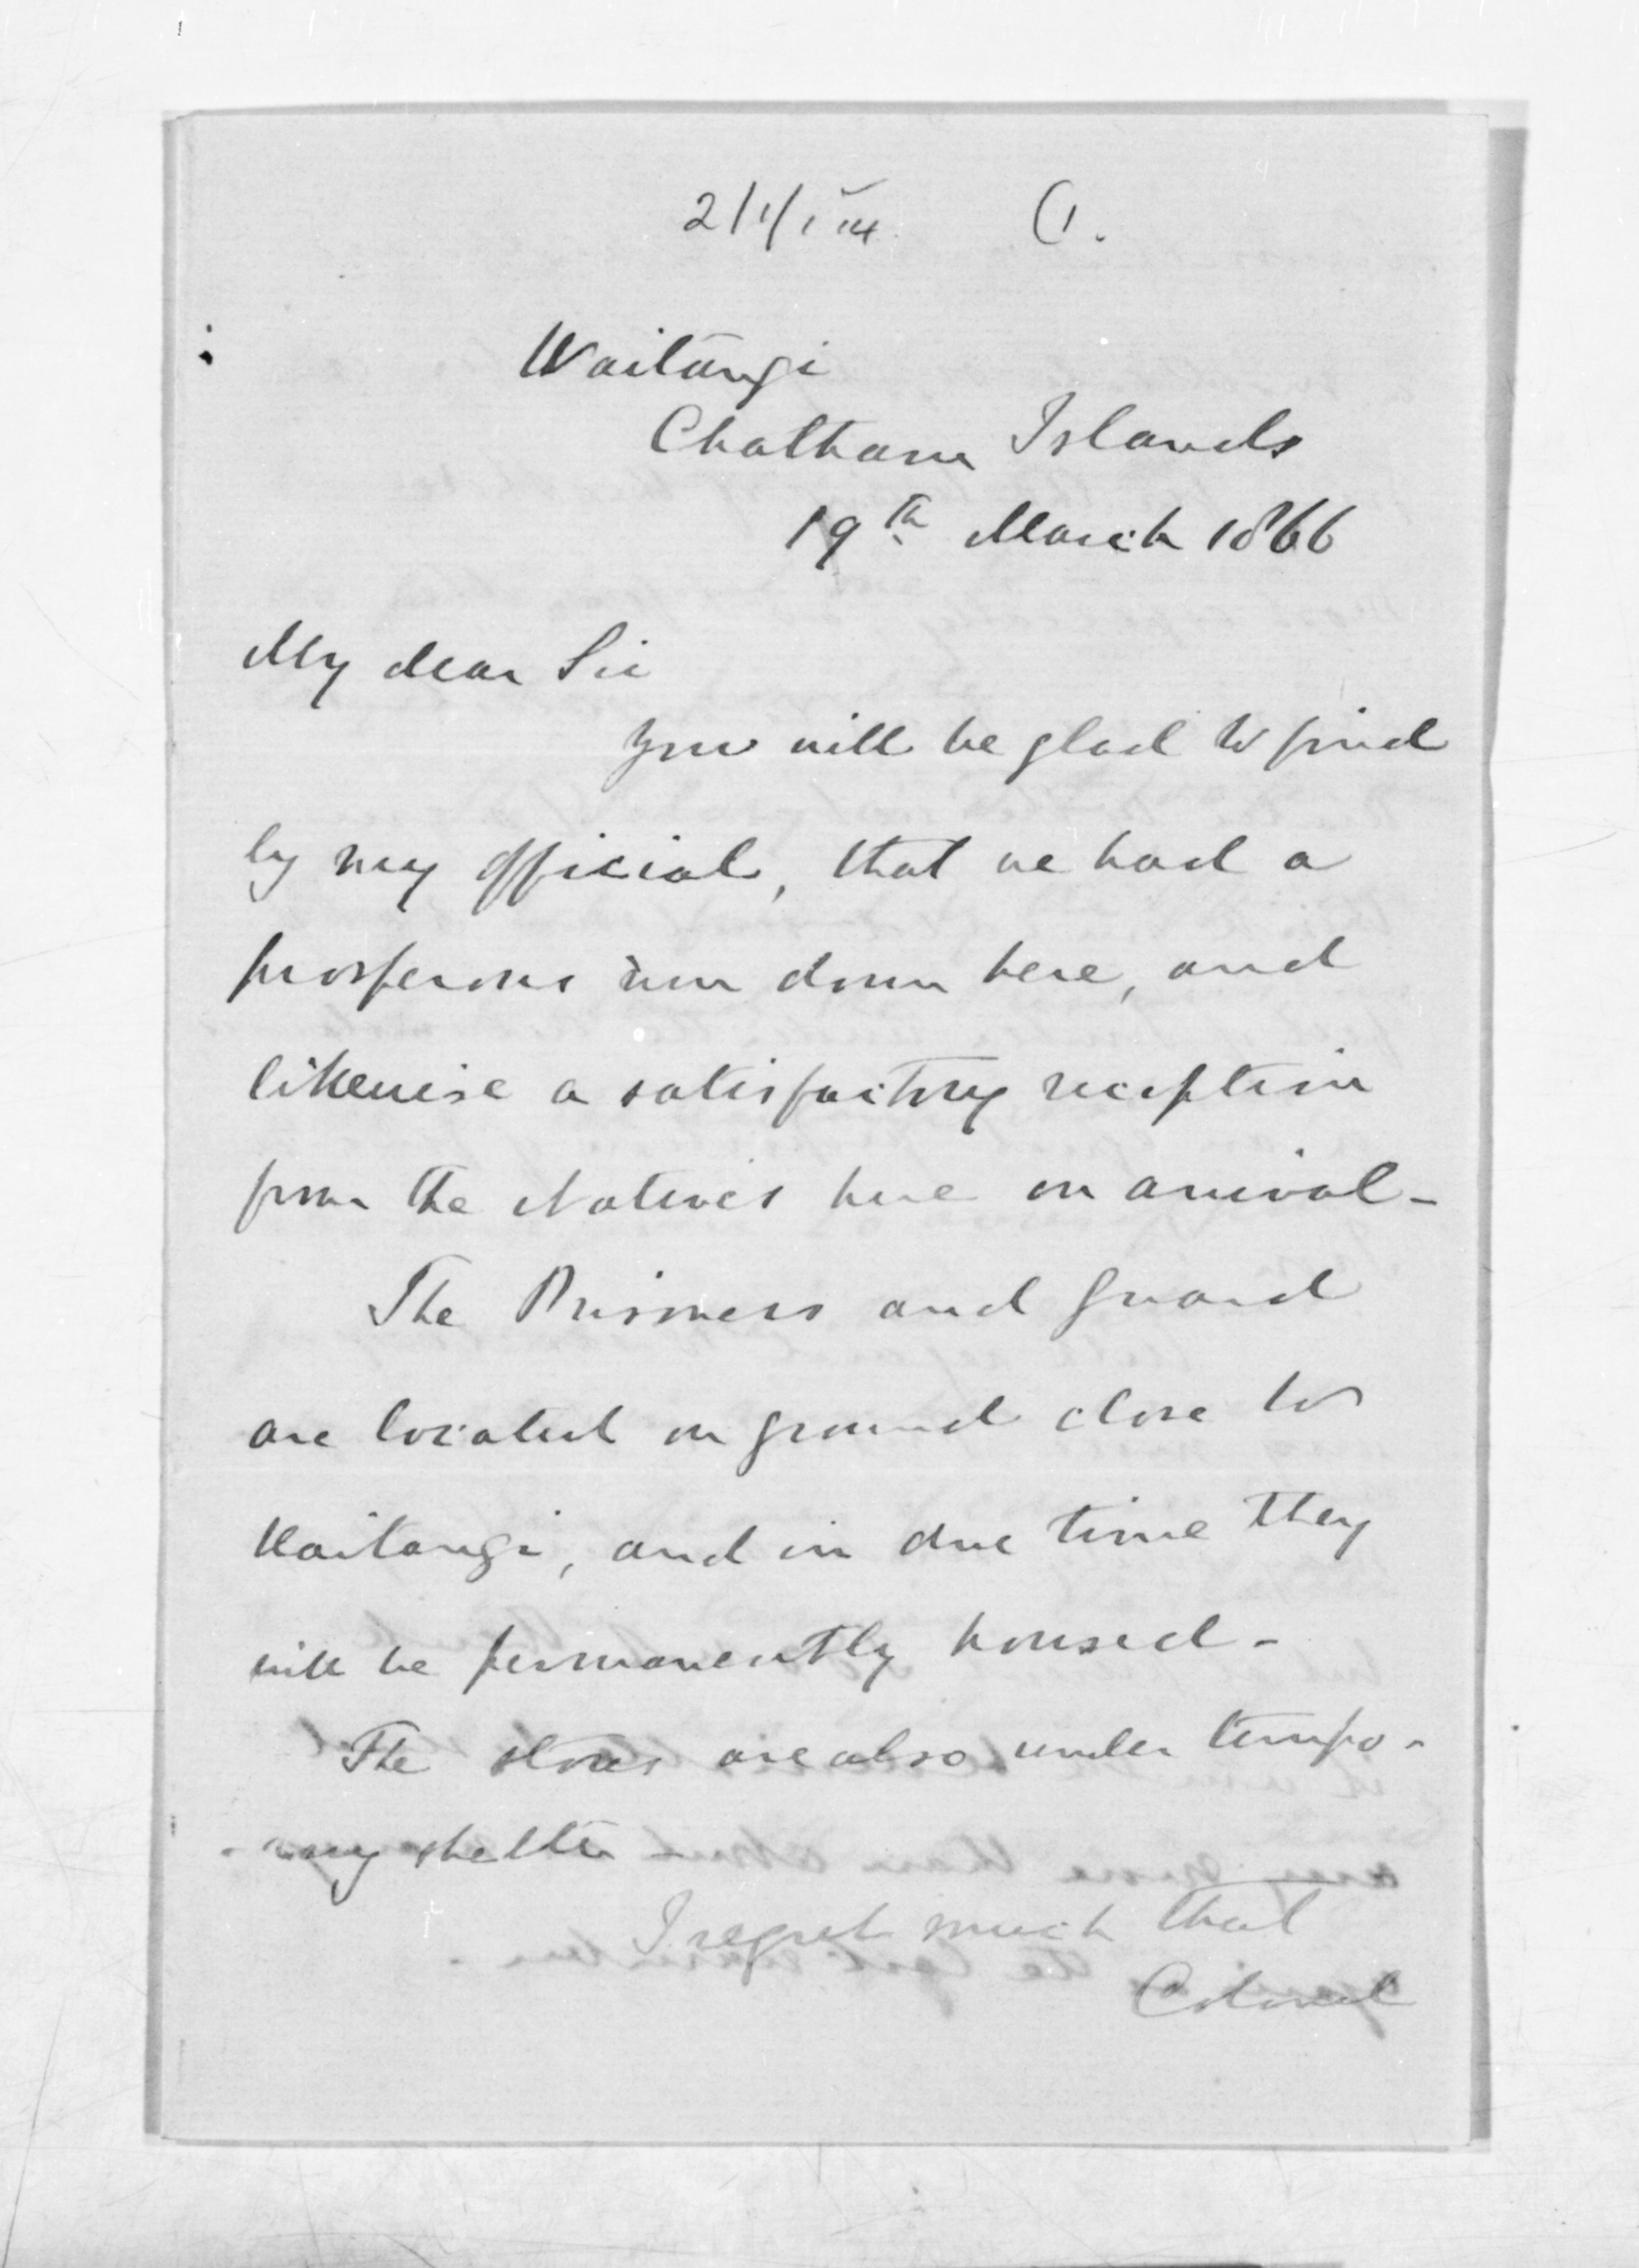 (1.
Waitangi
Chatham Islands
19th March 1866
My dear Sir
you will be glad to find
by my official, that we had a
prosperous run down here, and
likewise a satisfactory reception
from the Natives here on arrival-
The Prisoners and Guard
are located on ground close to
Waitangi, and in due time they
will be permanently housed-
The stores are also under tempo-
-rary shelter-
I regret much that
Colonel